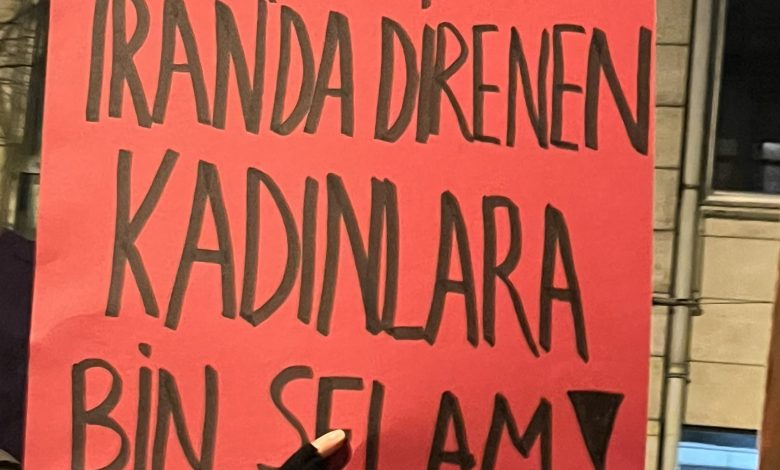 İRAN'DA DİRENEN
KADINLARA
BİN SELAM!